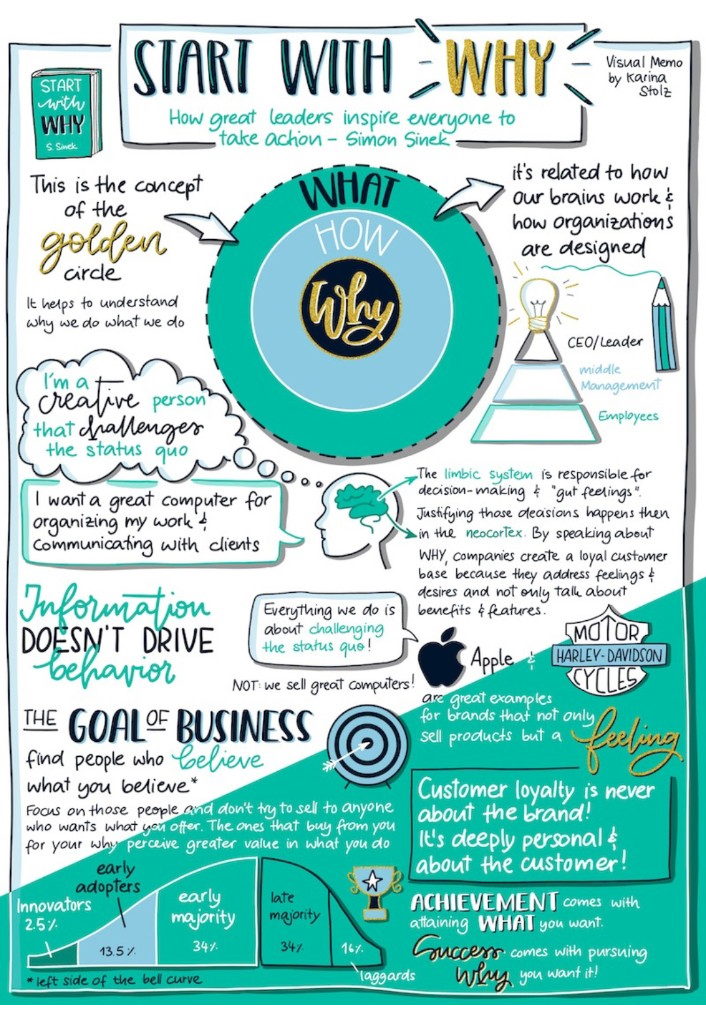 START WITH WHY
Visual Memo
by Karina
Stolz
START
with
WHY
S. Sinek
How great leaders inspire everyone to
take action - Simon Sinek
This is the concept
of the
golden
circle
It helps to understand
why we do what we do
WHAT
HOW
Why
it's related to how
our brains work &
how organizations
are designed
CEO/Leader
middle
Management
Employees
I'm a
creative person
that challenges
the status quo
I want a great computer for
organizing my work &
communicating with clients
The limbic system is responsible for
decision-making & "gut feelings".
Justifying those decisions happens then
in the neocortex. By speaking about
WHY, companies create a loyal customer
base because they address feelings &
desires and not only talk about
benefits & features.
Information
DOESN'T DRIVE
behavior
Everything we do is
about challenging
the status quo!
NOT: we sell great computers!
Apple &
MOTOR
HARLEY-DAVIDSON
CYCLES
are great examples
for brands that not only
sell products but a feeling
THE GOAL OF BUSINESS
find people who believe
what you believe*
Focus on those people and don't try to sell to anyone
who wants what you offer. The ones that buy from you
for your why perceive greater value in what you do
Customer loyalty is never
about the brand!
It's deeply personal &
about the customer!
Innovators
2.5%
early
adopters
13.5%
early
majority
34%
late
majority
34%
16%
laggards
*left side of the bell curve
ACHIEVEMENT comes with
attaining WHAT you want.
Success comes with pursuing
Why you want it!